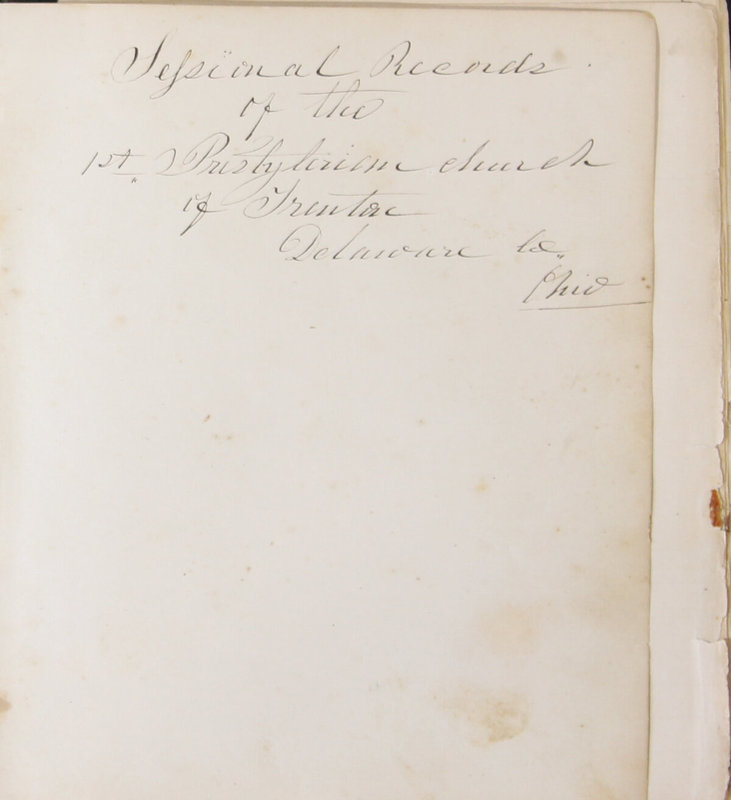 Sessional Records
of the
1st Presbyterian church
of Trenton
Delaware Co.
Ohio